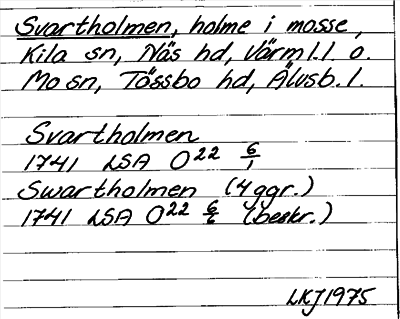 Svartholmen, holme i mosse,
Kila sn, Näs hd, Värml. l. o.
Mo sn, Tössbo hd, Älvsb. l.
Svartholmen
1741 LSA O22 6/1
Swartholmen (4 ggr.)
1741 LSA O22 6/6 (beskr.)
LKJ 1975